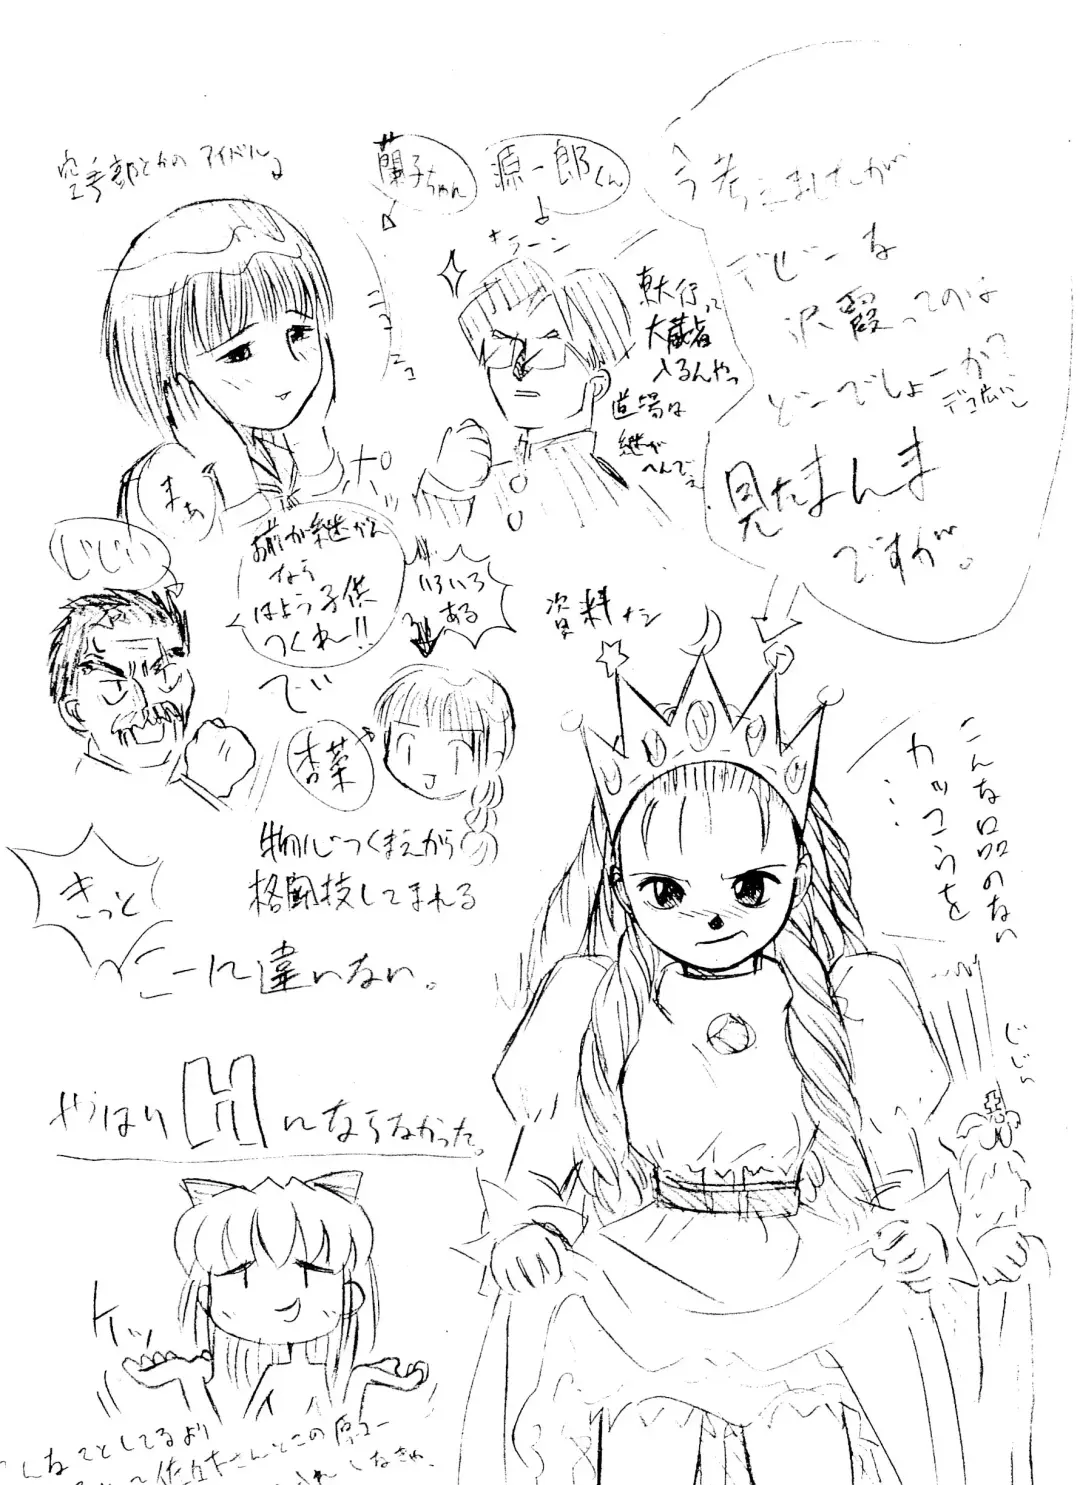 空手部とかのアイドル
蘭子ちゃん
源一郎くん
キラーン
東大行って
大蔵省
入るんやっ
道場は
継が
へんでェ
ニコ
ニコ
ポッ
まぁ
今考えましたが
デビューな
沢霞ってのは
どーでしょーか?
デコ広い
見たまんま
ですが。
じじい
お前が継がん
なら
はよう子供
つくれー!!
いろいろ
ある
で
杏菜
物心つくまえから
格闘技してまれる
きっと
こーに違いない。
資料ナシ
こんな品のない
カッコうを
…
じじい
やはり Hにならなかった。
ケッ
こんなことしてるより
佐々木さんとこの原コー
入れしなきゃ。